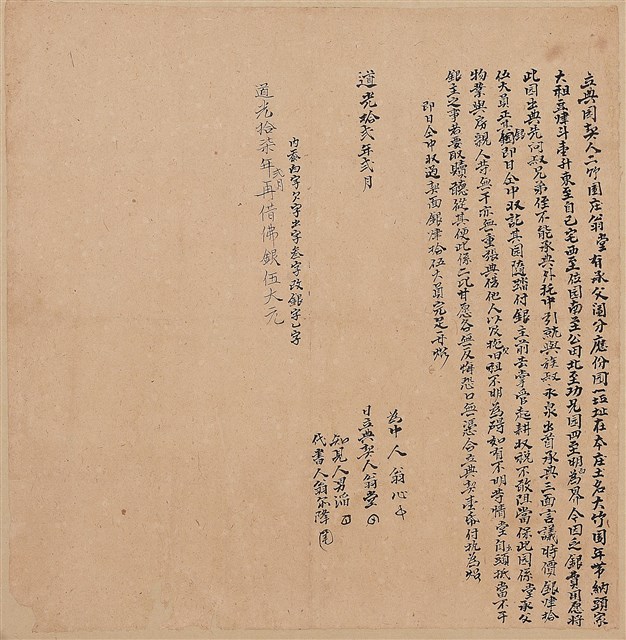 立典园契人二竹園庄翁堂有承父鬮分應份园一坵址在本庄土名大竹园年帶納頭家
大租豆肆斗壹升東至自己宅西至位园南至公田北至功兄园四至明為界今因乏銀費用愿將
此园出典先问叔兄弟侄不能承典外托中引就與族叔永泉出首承典三面言議時價銀肆拾
伍大員正其銀即日仝中收訖其园隨踏付銀主前去掌管起耕收稅不敢阻當保此园係堂承父
物業與房親人等無干亦無重張典掛他人以及拖旧租不明為碍如有不明等情堂自頭抵當不干
銀主之事若要取贖聽從其便此係二比甘愿各無反悔恐口無憑合立典契壹紙付执為炤
即日仝中收過契面銀肆拾伍大員完足再炤
道光拾弍年弍月
為中人翁心
日立典契人翁堂
知見人男
代書人翁
內叁字改銀字乙字
道光拾柒年弍月再借佛銀伍大元